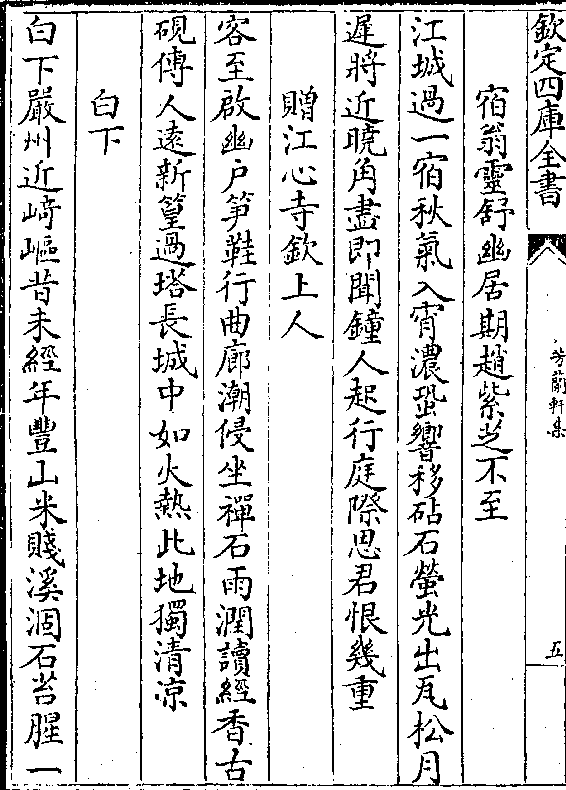 欽定四庫全書
芳蘭軒集
五
宿翁靈舒幽居期趙紫芝不至
江城過一宿秋氣入宵濃蛩響移砧石螢光出瓦松月
遲將近曉角盡即聞鐘人起行庭際思君恨幾重
贈江心寺欽上人
客至啟幽户笋鞋行曲廊潮侵坐禪石雨潤讀經香古
硯傳人遠新篁過塔長城中如火熱此地獨清凉
白下
白下嚴州近﨑嶇昔未經年豐山米賤溪涸石苔腥一